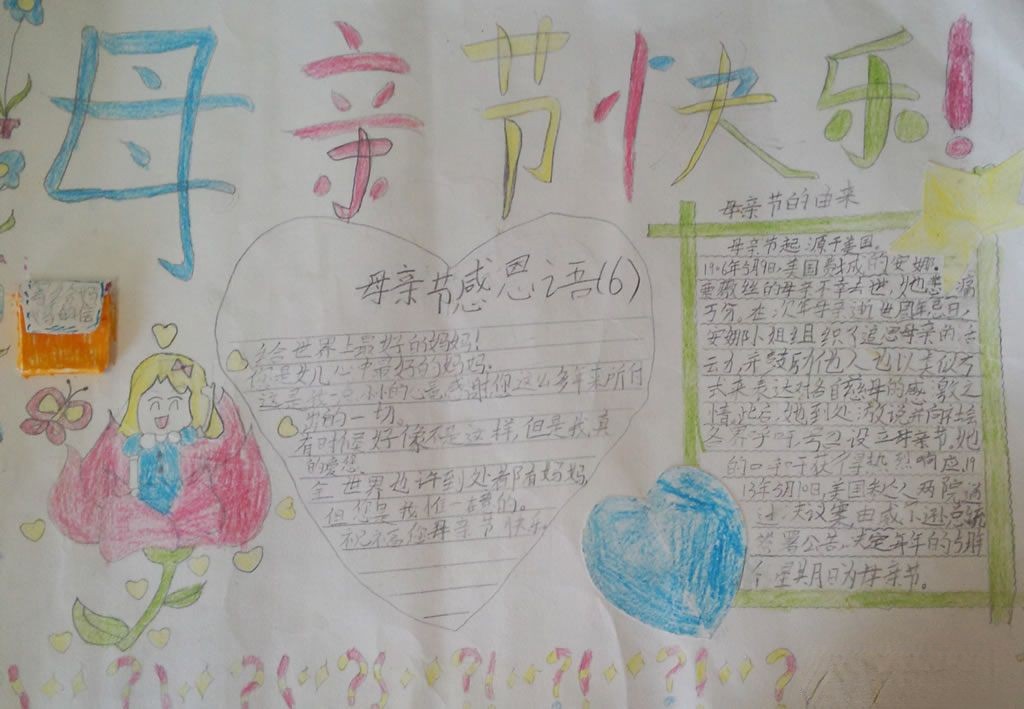 母亲节快乐!
母亲节感恩之语(6)
给世界上最好的妈妈!
你是女儿心中最好的妈妈.
这是我一点小小的心意,感谢你这么多年来所付
出的一切.
有时候好像不是这样,但是我真
的爱您.
全世界也许到处都有妈妈,
但您是我唯一的。
祝 您母亲节快乐
母亲节的由来
母亲节起源于美国。
1906年5月9日,美国费城的安娜.
薇丝的母亲不幸去世,她悲痛
万分。在次年母亲逝世周年忌日,
安娜小姐组织了追思母亲的活
动,并鼓励他人也以类似方
式来表达对各自慈母的感激之
情,此后,她到处游说并向社会
各界呼吁,号召设立母亲节,她
的呼吁获得热烈响应,19
13年5月10日,美国参众两院通
过决议案,由威 逊总统
签署公告,决定每年的5月
个星期日为母亲节。